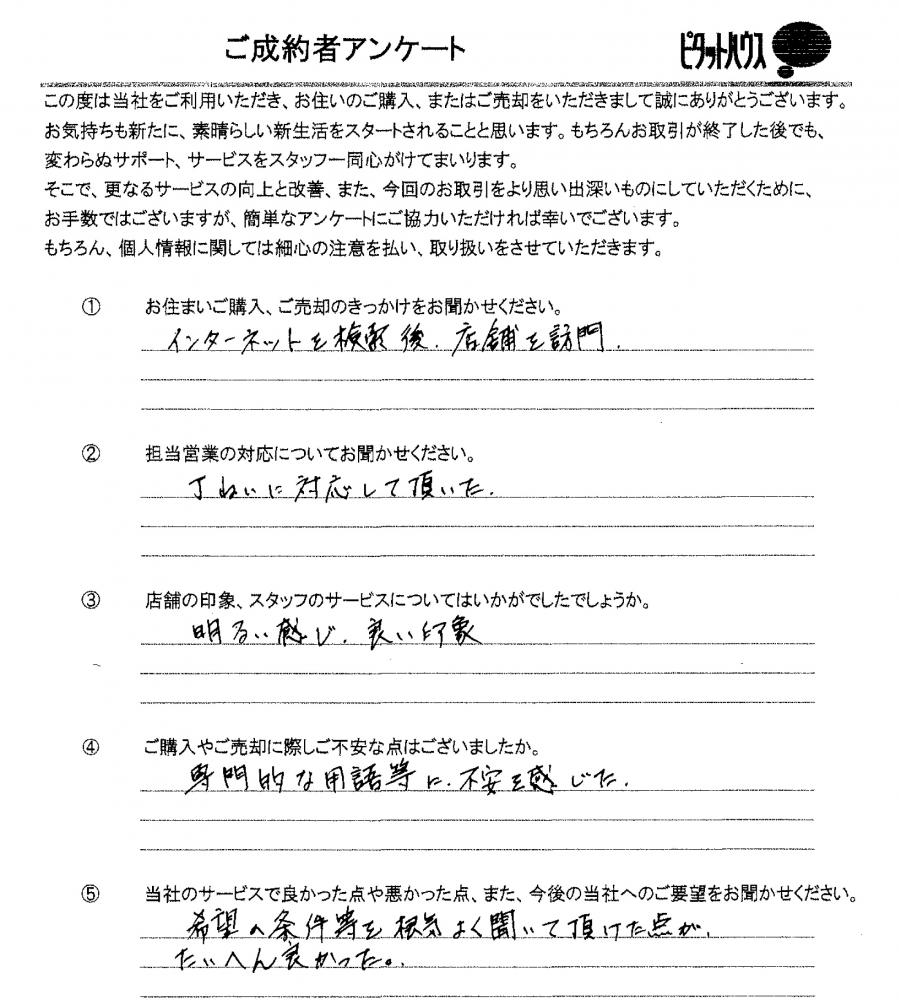 ご成約者アンケート
ピタットハウス
この度は当社をご利用いただき、お住いのご購入、またはご売却をいただきまして誠にありがとうございます。
お気持ちも新たに、素晴らしい新生活をスタートされることと思います。もちろんお取引が終了した後でも、
変わらぬサポート、サービスをスタッフ一同心がけてまいります。
そこで、更なるサービスの向上と改善、また、今回のお取引をより思い出深いものにしていただくために、
お手数ではございますが、簡単なアンケートにご協力いただければ幸いでございます。
もちろん、個人情報に関しては細心の注意を払い、取り扱いをさせていただきます。
① お住まいご購入、ご売却のきっかけをお聞かせください。
インターネットを検索後、店舗を訪問.
② 担当営業の対応についてお聞かせください。
丁ねいに対応して頂いた.
③ 店舗の印象、スタッフのサービスについてはいかがでしたでしょうか。
明るい感じ、良い印象
④ ご購入やご売却に際しご不安な点はございましたか。
専門的な用語等に、不安を感じた.
⑤ 当社のサービスで良かった点や悪かった点、また、今後の当社へのご要望をお聞かせください。
希望の条件等を根気よく聞いて頂けた点が、
たいへん良かった。.